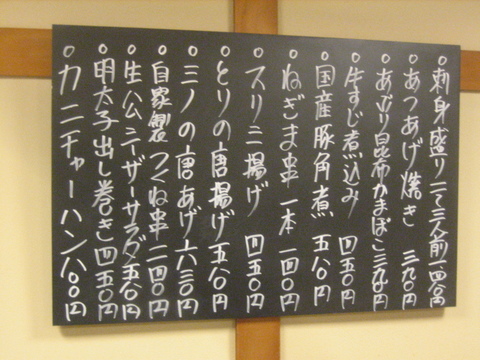 ○刺身盛り二~三人前一四〇〇円
○あつあげ焼き 三九〇円
○あぶり昆布かまぼこ三九〇円
○牛すじ煮込み 四五〇円
○国産豚角煮 五八〇円
○ねぎま串一本 一四〇円
○スリミ揚げ 四五〇円
○とりの唐揚げ五八〇円
○ミノの唐あげ六三〇円
○自家製つくね串二四〇円
○生ハムシーザーサラダ五八〇円
○明太子出し巻き四五〇円
○カニチャーハン八〇〇円